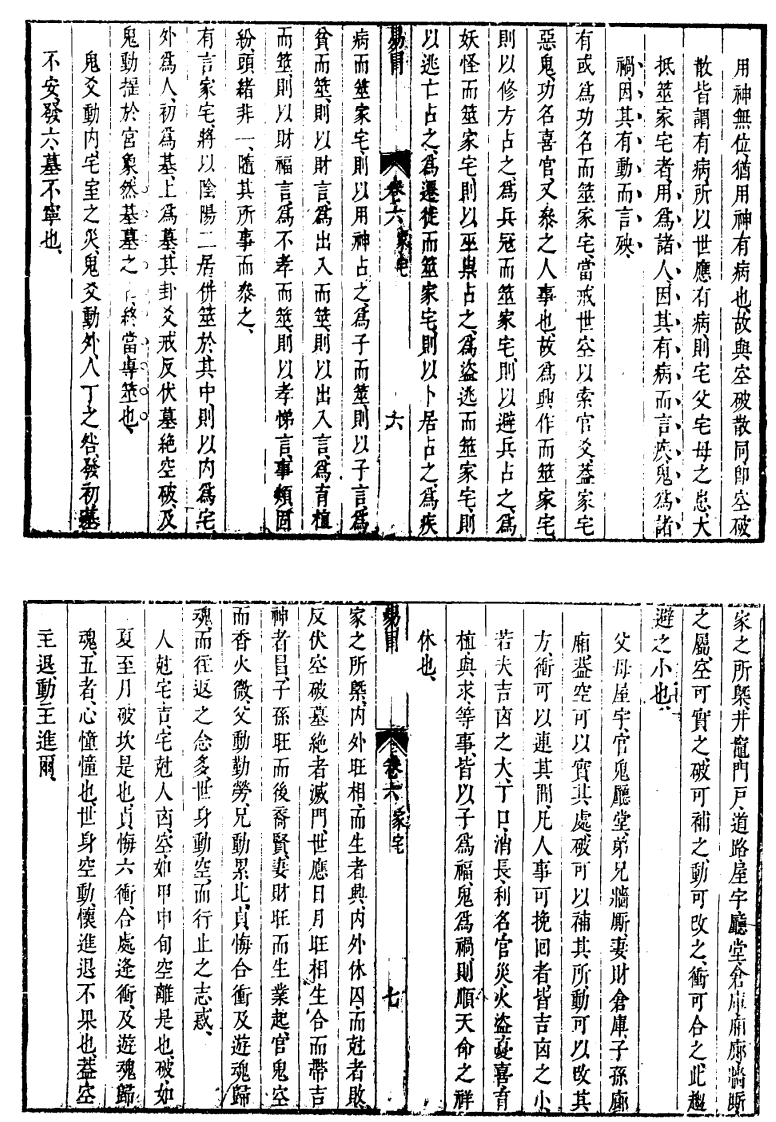 用神無位、猶用神有病也、故與空破散同、卽空破
散皆謂有病、所以世應有病、則宅父宅母之患、大
抵筮家宅者、用為諸人、因其有病而言疾、鬼為諸
禍、因其有動而言殃、
有或為功名而筮家宅、當戒世空以索官爻、葢家宅
惡鬼、功名喜官、又叅之人事也、故為興作而筮家宅、
則以修方占之、為兵冦而筮家宅、則以避兵占之、為
妖怪而筮家宅、則以巫與占之、為盜逃而筮家宅、則
以逃亡占之、為遷徙而筮家宅、則以卜居占之、為疾
易冐 卷六 家宅 六
病而筮家宅、則以用神占之、為子而筮、則以子言、為
貧而筮、則以財言、為出入而筮、則以出入言、為育植
而筮、則以財福言、為不孝而筮、則以孝悌言、事頻因
紛、頭緒非一、隨其所事而叅之、
有言家宅、將以陰陽二居併筮於其中、則以內為宅、
外為人、初為基、上為墓、其卦爻戒反伏墓絕空破、及
鬼動揺於宮象、然基墓之 終當專筮也、
鬼爻動內、宅室之災、鬼爻動外、人丁之咎、發初基
不安、發六墓不寧也、
家之所槩、井竈門戸、道路屋宇、廳堂倉庫、廂廊牆厮
之屬、空可實之、破可補之、動可改之、衝可合之、此趨
避之小也、
父母屋宇、官鬼廳堂、弟兄牆厮、妻財倉庫、子孫廊
廂、葢空可以實其處、破可以補其所、動可以改其
方、衝可以連其間、凡人事可挽回者、皆吉㐫之小、
若夫吉㐫之大、丁口消長、利名官災、火盜憂喜、育
植與求等事、皆以子為福、鬼為禍、則順天命之祥
休也、
易冐 卷六 家宅 七
家之所槩、內外旺相、而生者興、內外休囚、而尅者敗、
反伏空破墓絕者滅門、世應日月旺相生合而帶吉
神者昌、子孫旺而後裔賢、妻財旺而生業起、官鬼空
而香火微、父動勤勞、兄動累北、貞悔合衝及遊魂歸
魂而往返之念多、世身動空而行止之志惑、
人尅宅吉、宅尅人㐫、空如甲申旬空離是也、破如
夏至月破坎是也、貞悔六衝、合處逢衝、及遊魂歸
魂、五者、心憧憧也、世身空動、懷進退不果也、葢空
主退、動主進爾、